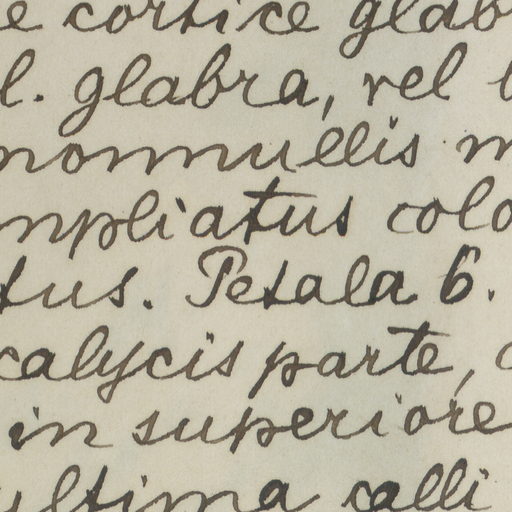 e cortice glab
l. glabra, vel
nonnullis
mpliatus colo
tus. Petala 6.
calycis parte,
in superiore
ultima calli